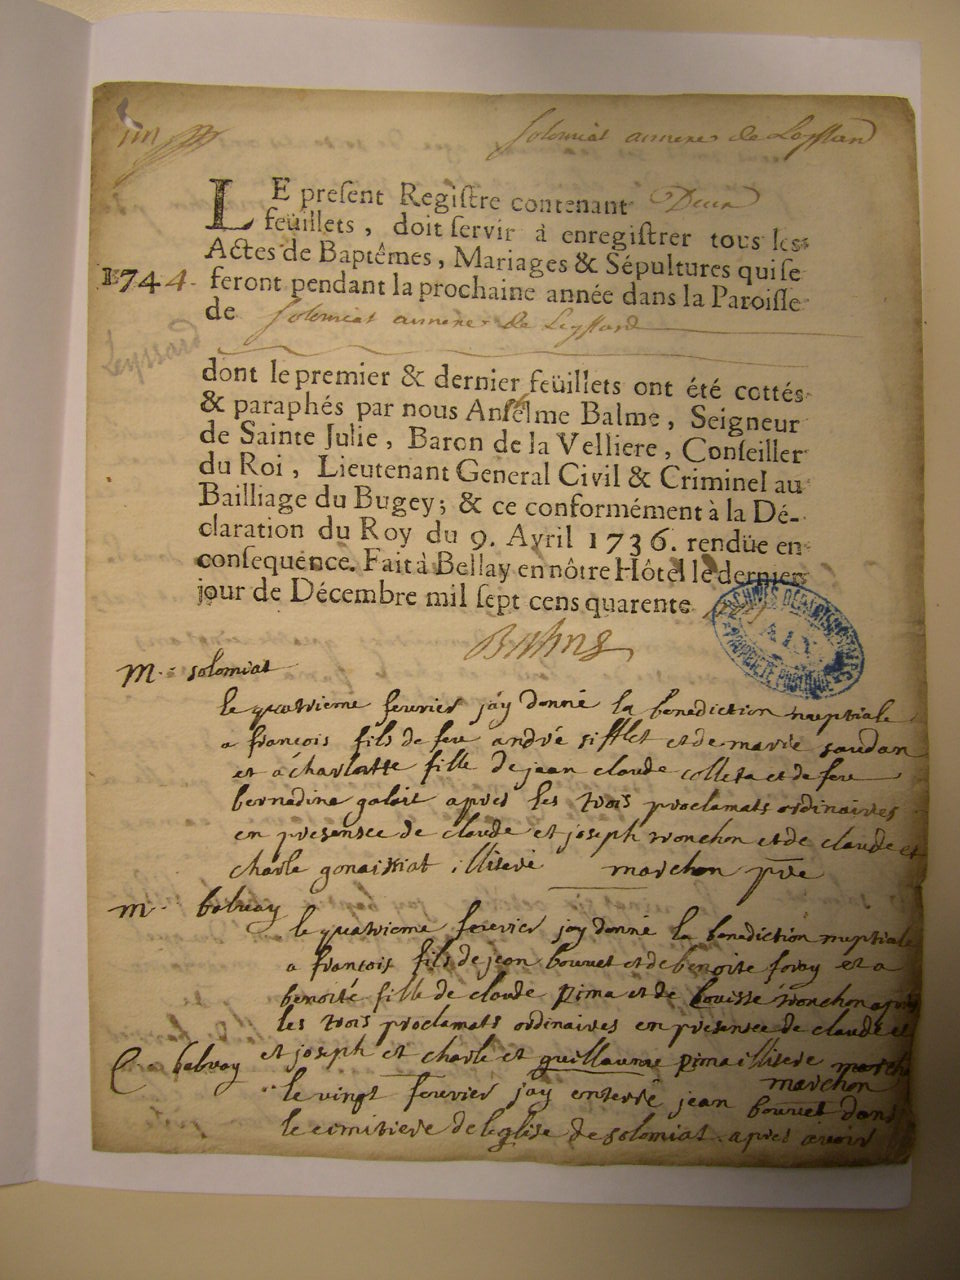 Solomiat annexe de Leyssard
LE present Registre contenant Deux
feüillets, doit servir à enregistrer tous les
Actes de Baptêmes, Mariages & Sépultures qui se
1744. feront pendant la prochaine année dans la Paroisse
de Solomiat annexe de Leyssard
Leyssard
dont le premier & dernier feüillets ont été cottés
& paraphés par nous Anselme Balme, Seigneur
de Sainte Julie, Baron de la Velliere, Conseiller
du Roi, Lieutenant General Civil & Criminel au
Bailliage du Bugey; & ce conformément à la Dé-
claration du Roy du 9. Avril 1736. rendüe en
consequence. Fait à Bellay en nôtre Hôtel le dernier
jour de Décembre mil sept cens quarente
ARCHIVES DÉPARTEMENTALES
AIN
PROPRIÉTÉ PUBLIQUE
Balme
m. solomiat
le quatrieme feuvrier j'ay donné la benediction nuptiale
a francois fils de feu andré sifflet et de marie saudan
et a charlotte fille de jean claude colleta et de feue
bernadine galait apres les trois proclamats ordinaires
en presensce de claude et joseph ronchon et de claude et
charle gonaissiat illiteré marchon ptre
m. bolvay
le quatrieme feuvrier jay donné la benediction nuptiale
a francois fils de jean bouvet et de benoite foray et a
benoite fille de claude pima et de Louisse ronchon apres
les trois proclamats ordinaires en presensce de claude et
et joseph et charle et guillaume pima illitere
marchon
bolvay
le vingt feuvrier jay enterré jean bouvet dans
le cimitiere de leglise de solomiat apres avoir